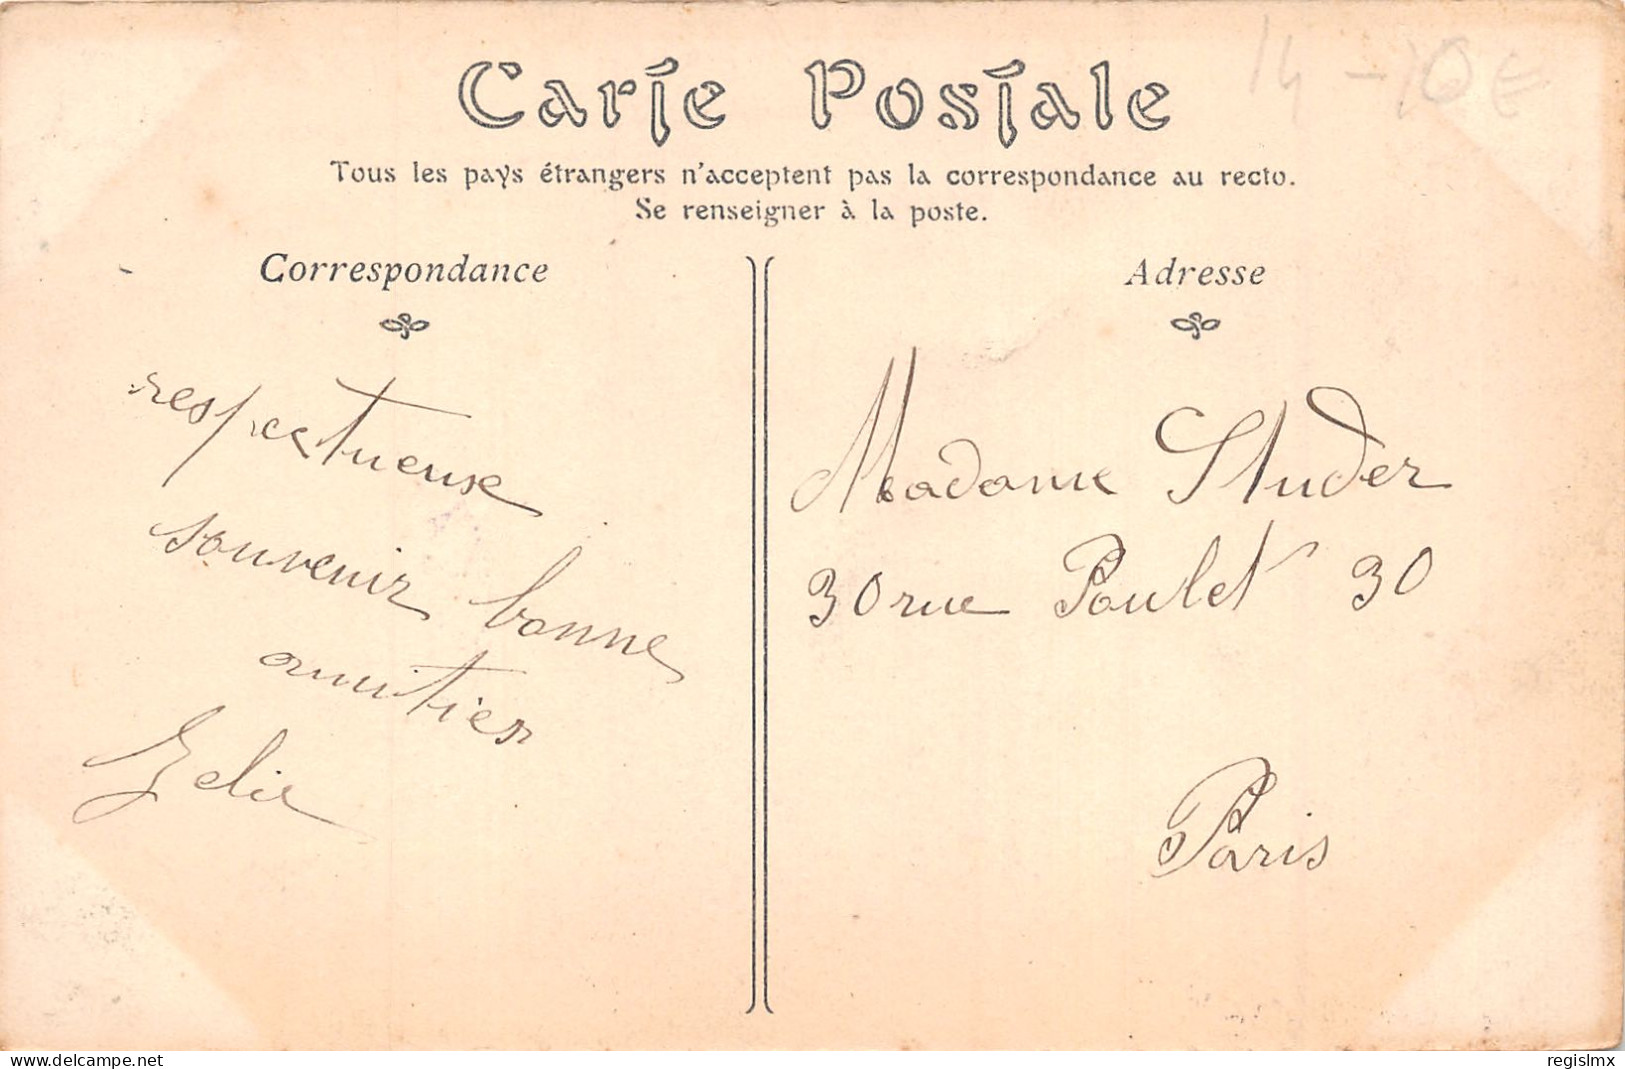 14 - 10€
Carte Postale
Tous les pays étrangers n'acceptent pas la correspondance au recto.
Se renseigner à la poste.
Correspondance
respectueuse
souvenir bonne
amitier
Zelie
Adresse
Madame Studer
30 rue Poulet 30
Paris
www.delcampe.net
regislmx